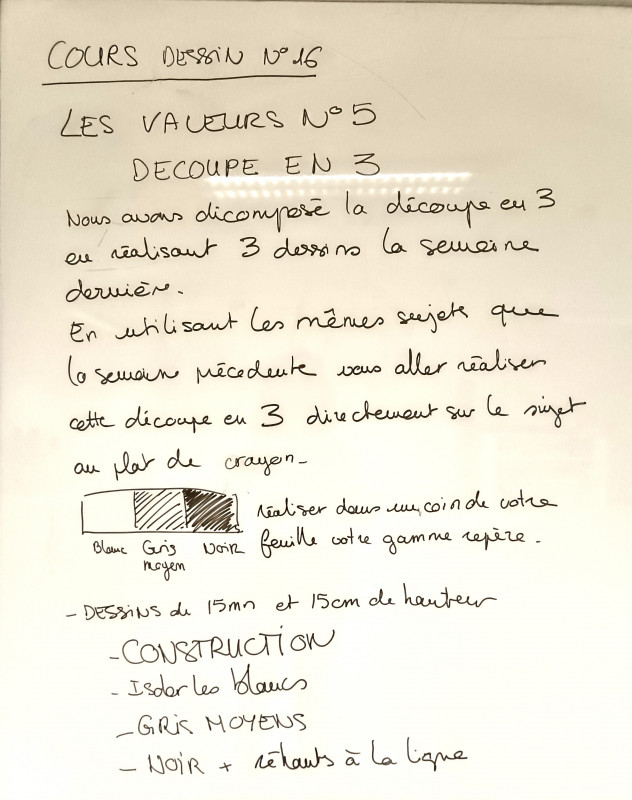 COURS DESSIN N° 16
LES VALEURS N° 5
DECOUPE EN 3
Nous avons dicomposé la découpe en 3
en réalisant 3 dessins la semaine
dernière.
En utilisant les mêmes sujets que
la semaine précedente vous aller réaliser
cette découpe en 3 directement sur le sujet
au plat de crayon -
réaliser dans un coin de votre
Blanc Gris NOIR feuille votre gamme repère.
moyen
- DESSINS de 15mn et 15cm de hauteur
- CONSTRUCTION
- Isoler les blancs
- GRIS MOYENS
- NOIR + réhauts à la ligne